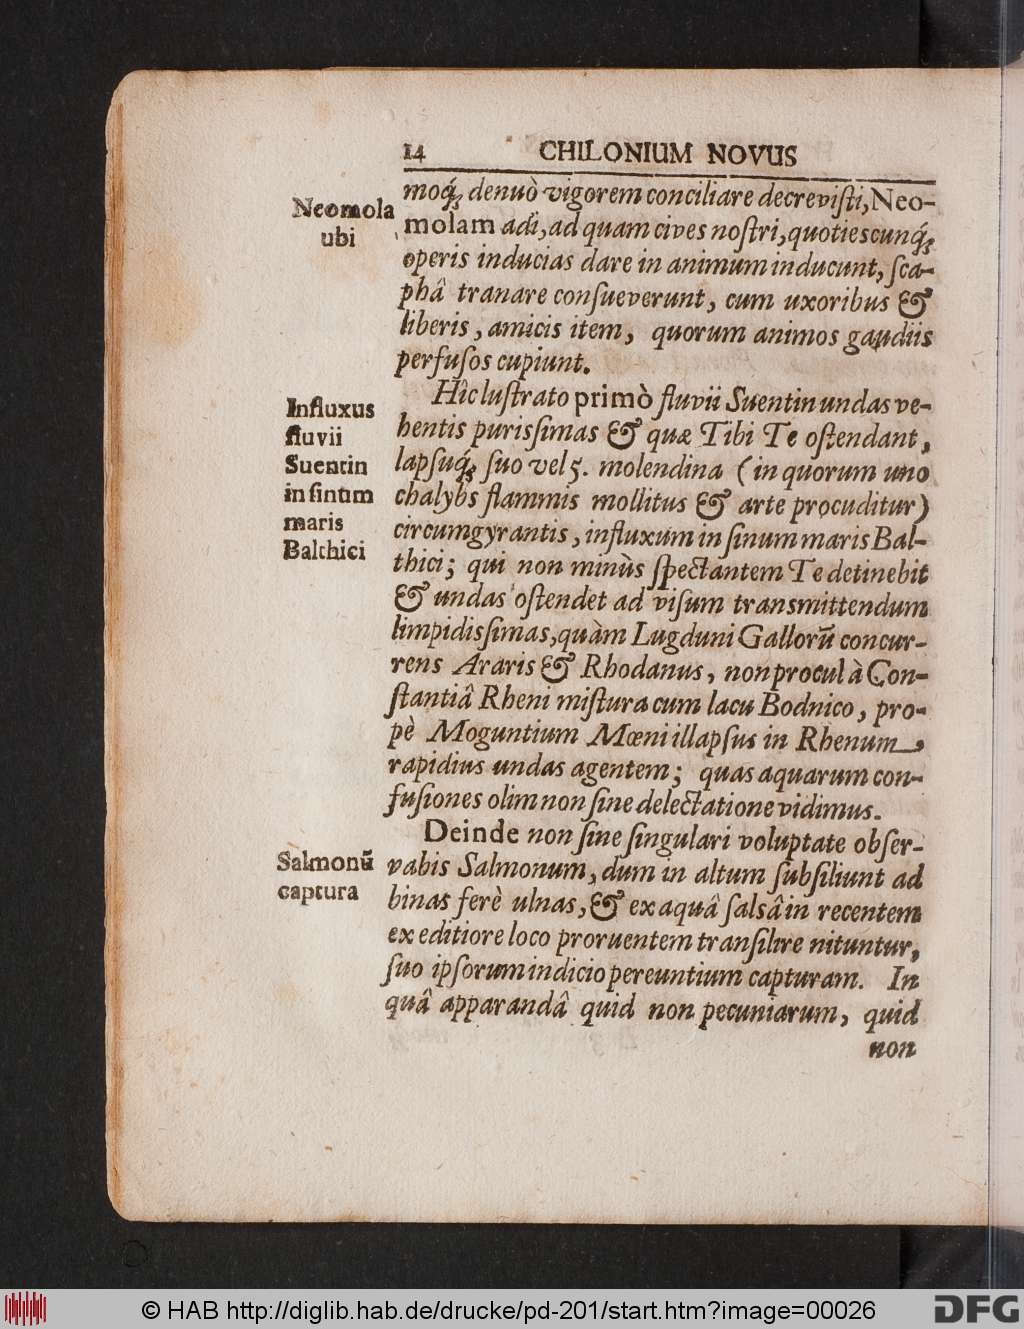 14 CHILONIUM NOVUS
Neomola
ubi
moq́; denuò vigorem conciliare decrevisti, Neo-
molam adi, ad quam cives nostri, quotiescunq́;
operis inducias dare in animum inducunt, sca-
phâ tranare consueverunt, cum uxoribus &
liberis, amicis item, quorum animos gaudiis
perfusos cupiunt.
Influxus
fluvii
Suentin
in sinum
maris
Balthici
Hîc lustrato primò fluvii Suentin undas ve-
hentis purissimas & quæ Tibi Te ostendant,
lapsuq́; suo vel 5. molendina (in quorum uno
chalybs flammis mollitus & arte procuditur)
circumgyrantis, influxum in sinum maris Bal-
thici; qui non minùs spectantem Te detinebit
& undas ostendet ad visum transmittendum
limpidissimas, quàm Lugduni Gallorū concur-
rens Araris & Rhodanus, non procul à Con-
stantiâ Rheni mistura cum lacu Bodnico, pro-
pè Moguntium Mœni illapsus in Rhenum,
rapidius undas agentem; quas aquarum con-
fusiones olim non sine delectatione vidimus.
Salmonū
captura
Deinde non sine singulari voluptate obser-
vabis Salmonum, dum in altum subsiliunt ad
binas ferè ulnas, & ex aquâ salsâ in recentem
ex editiore loco proruentem transilire nituntur,
suo ipsorum indicio pereuntium capturam. In
quâ apparandâ quid non pecuniarum, quid
non
© HAB http://diglib.hab.de/drucke/pd-201/start.htm?image=00026
DFG